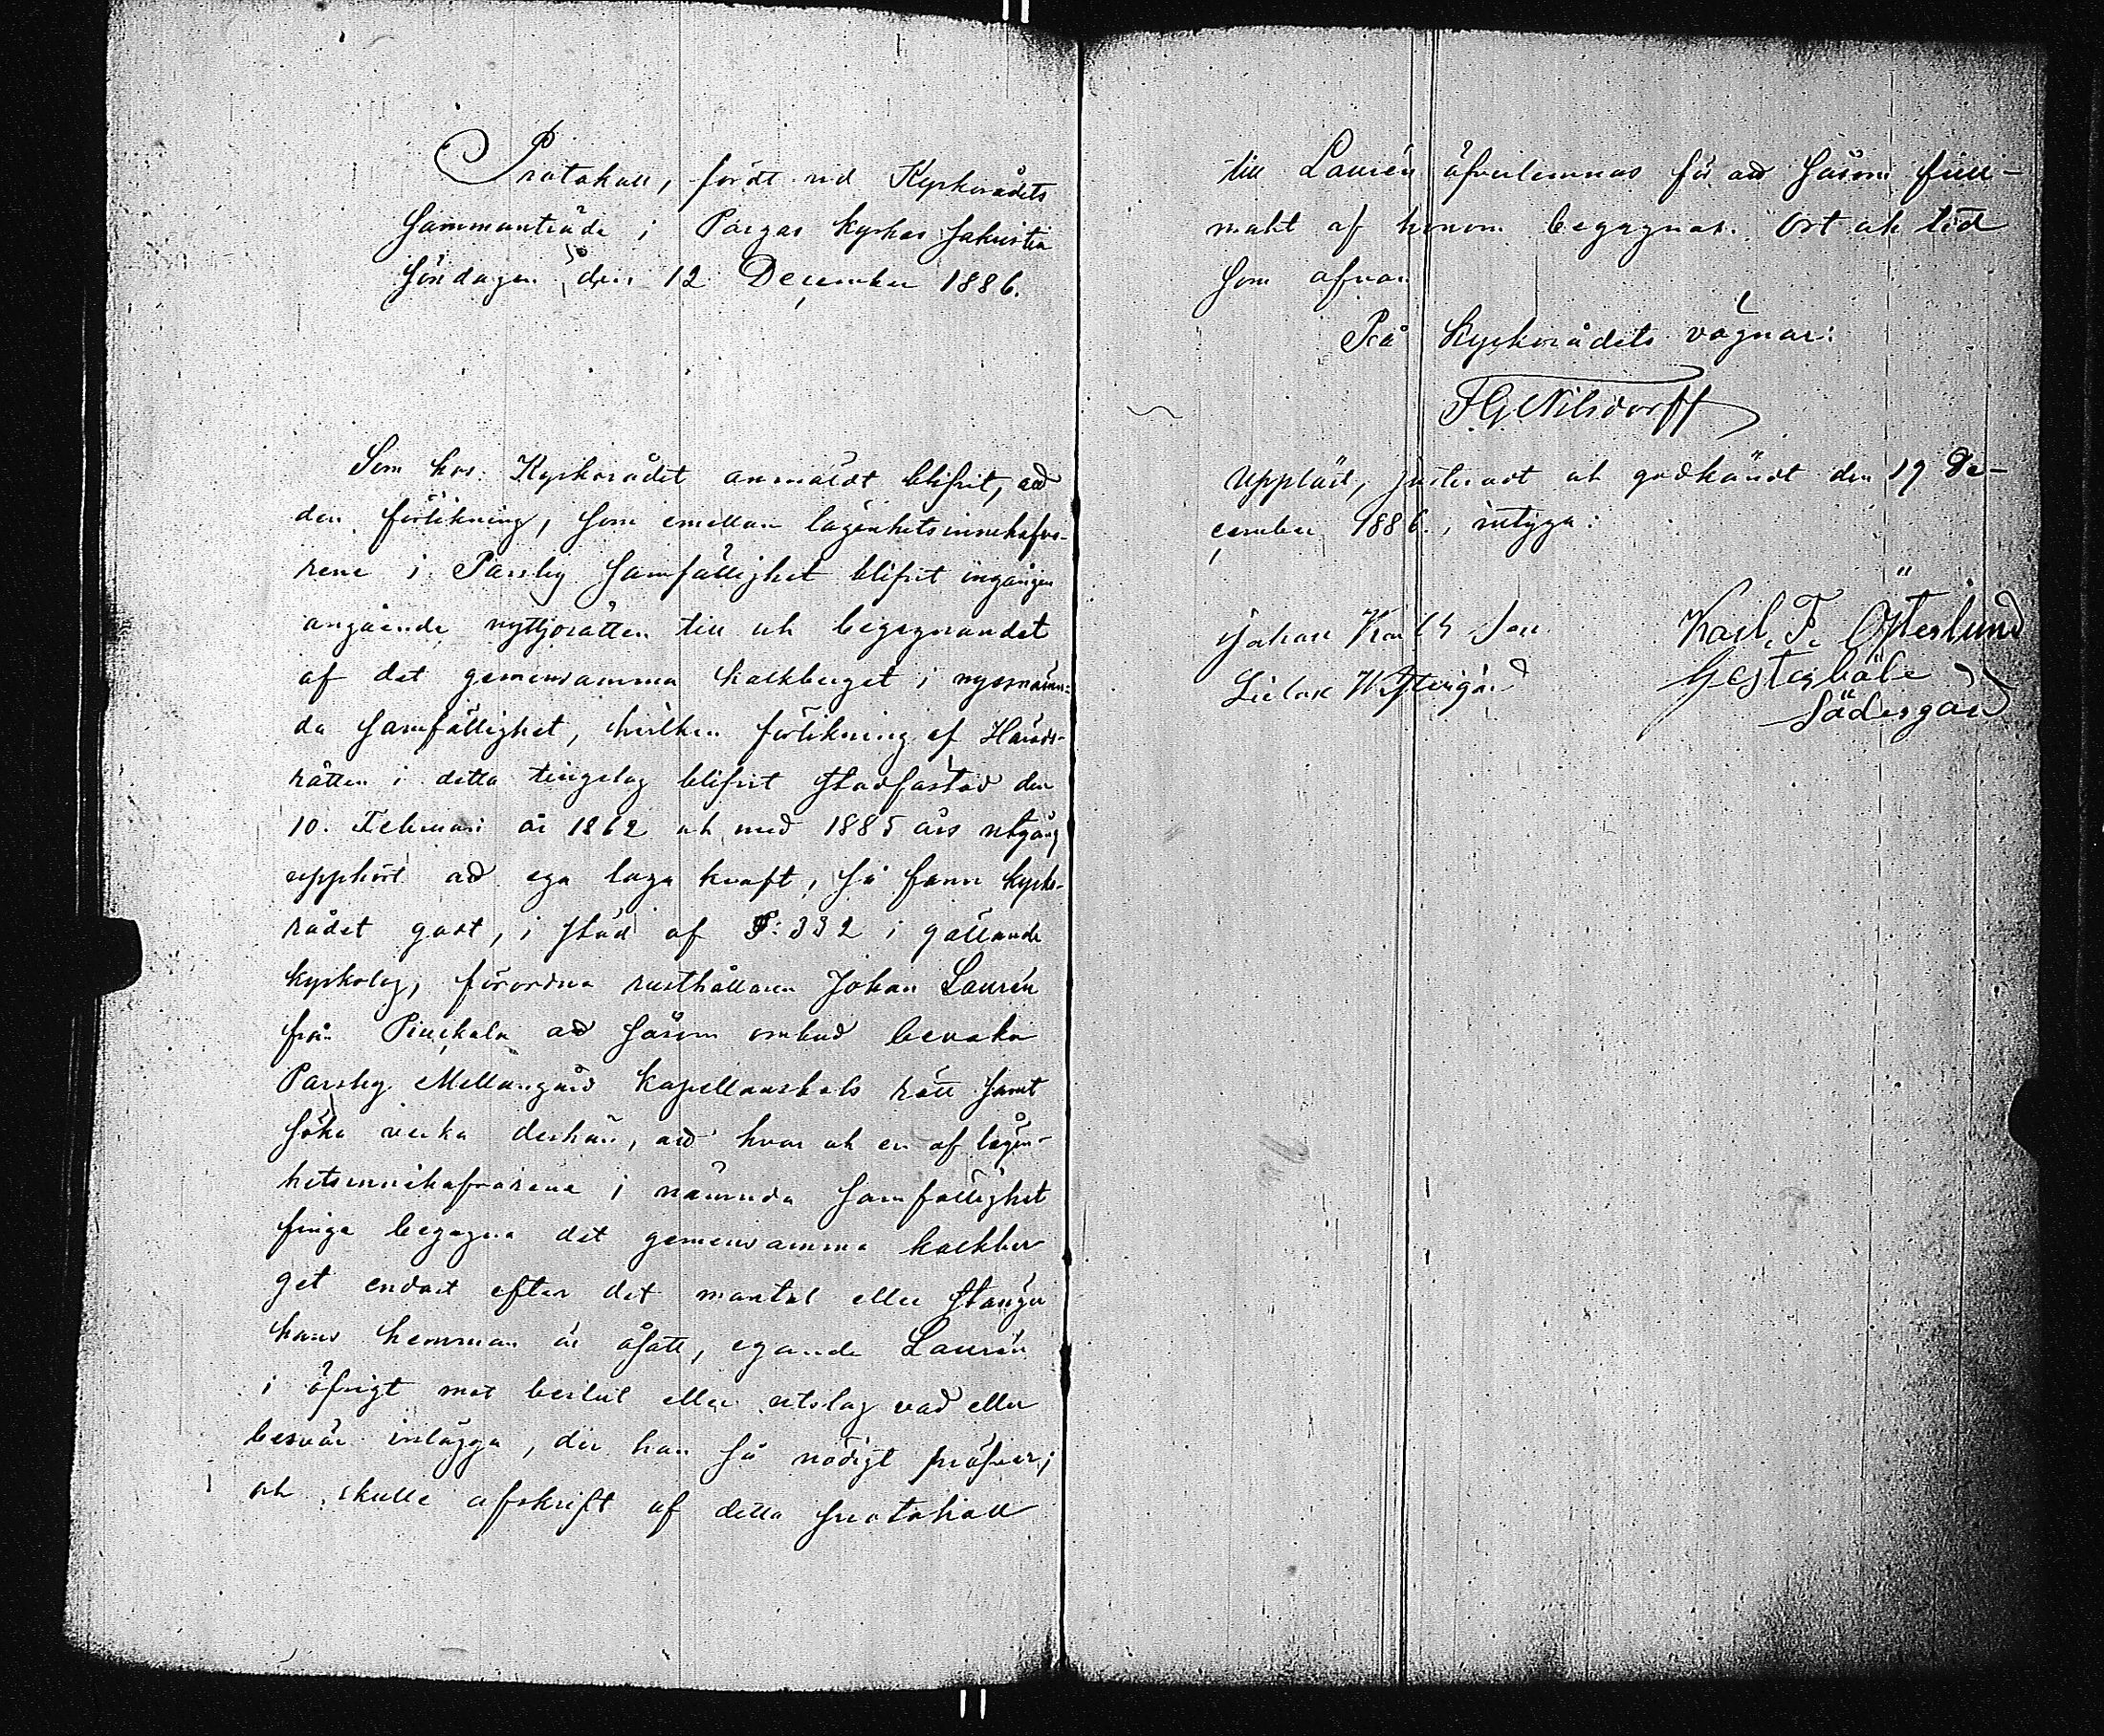 Protokoll, fördt vid Kyrkorådets
sammanträde i Pargas kyrkas sakristia
söndagen den 12 December 1886.
Som hos Kyrkorådet anmäldt blifvit, att
den förlikning, som emellan lägenhetsinnehafva-
rene i Parsby samfällighet blifvit ingången
angående nyttjorätten till och begagnandet
af det gemensamma kalkberget i nyssnämn-
da samfällighet, hvilken förlikning af Härads-
rätten i detta tingslag blifvit stadfästad den
10. Februari år 1862 och med 1885 års utgång
upphört att ega laga kraft, så fann kyrko-
rådet godt, i stöd af §: 332 i gällande
kyrkolag, förordna rusthållaren Johan Laurén
från Piuckala att såsom ombud bevaka
Parsby Mellangård Kapellansbols rätt samt
söka verka derhän, att hvar och en af lägen-
hetsinnehafvarene i nämnda samfällighet
finge begagna det gemensamma kalkber
get endast efter det mantal eller stänger
hans hemman är åsatt, egande Laurén
i öfrigt mot beslut eller utslag vad eller
besvär inlägga, der han så nödigt pröfvar;
och skulle afskrift af detta protokoll
till Laurén öfverlemnas för att såsom full-
makt af honom begagnas. Ort och tid
som ofvan
På Kyrkorådets vägnar:
F G Nilsdorff
Uppläst, justeradt och godkändt den 19 De-
cember 1886., intyga:
Johan Karls Son Karl. F. Österlund
Lielax Westergård Gesterböle
Södergård